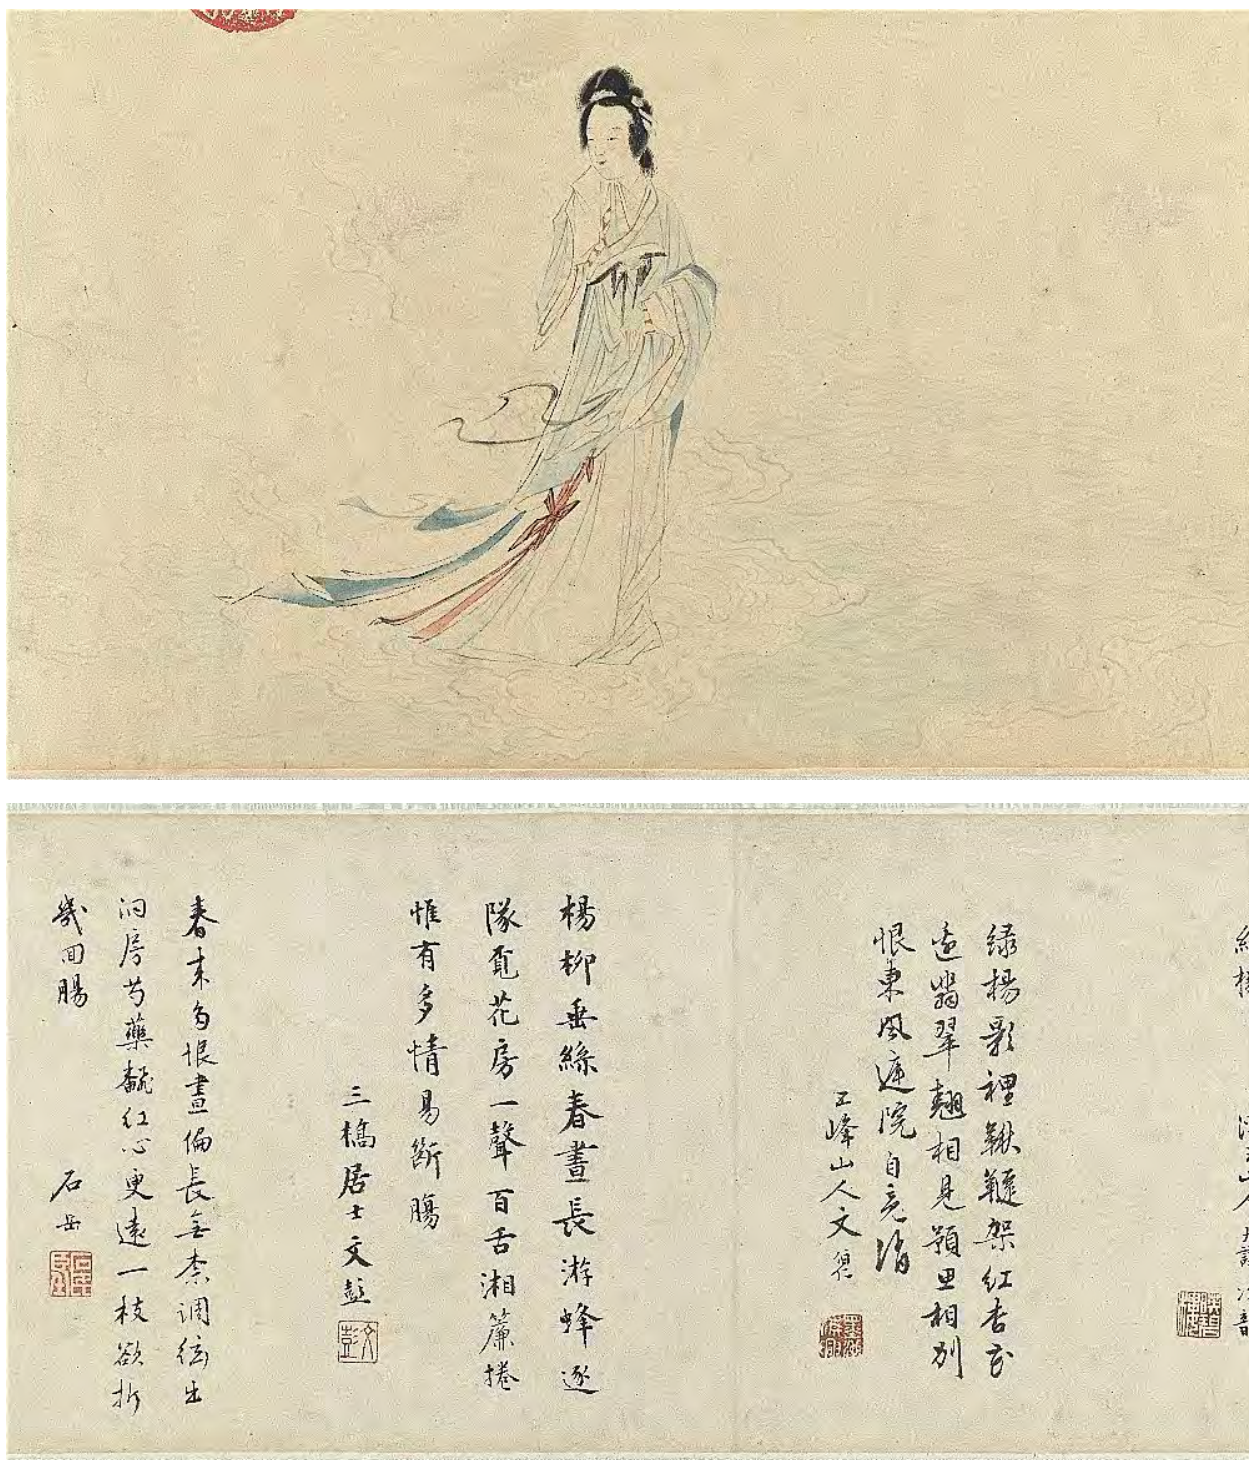 緑楊影裡鞦韆架紅杏花
邊翡翠翹相見預思相別
恨東風庭院自消
五峰山人文
楊柳垂絲春晝長游蜂逐
隊覓花房一聲百舌湘簾捲
惟有多情易斷腸
三橋居士文彭
文彭
春來恨晝偏長無柰調絃出
洞房芍藥飜紅心更遠一枝欲折
幾回腸
石岳